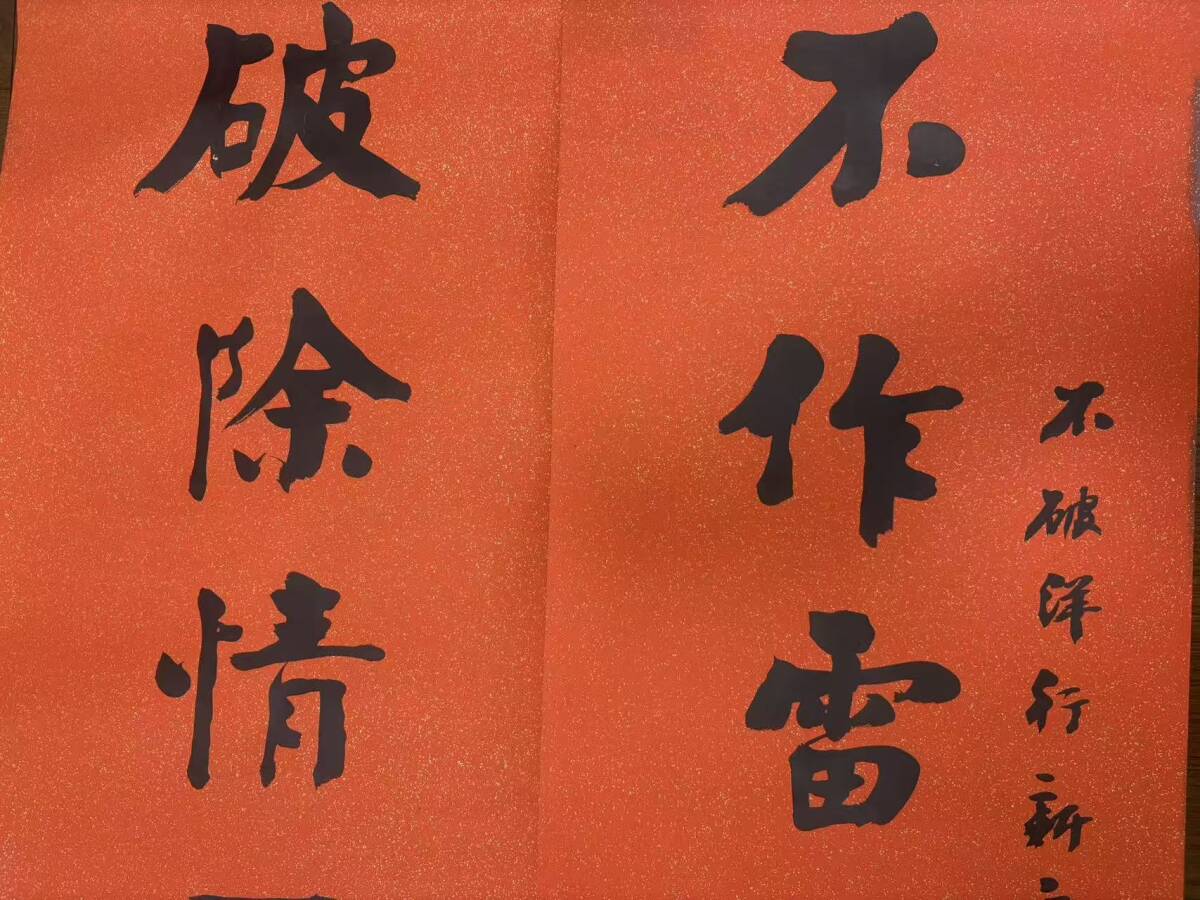 不破洋行新
不作雷
破除情